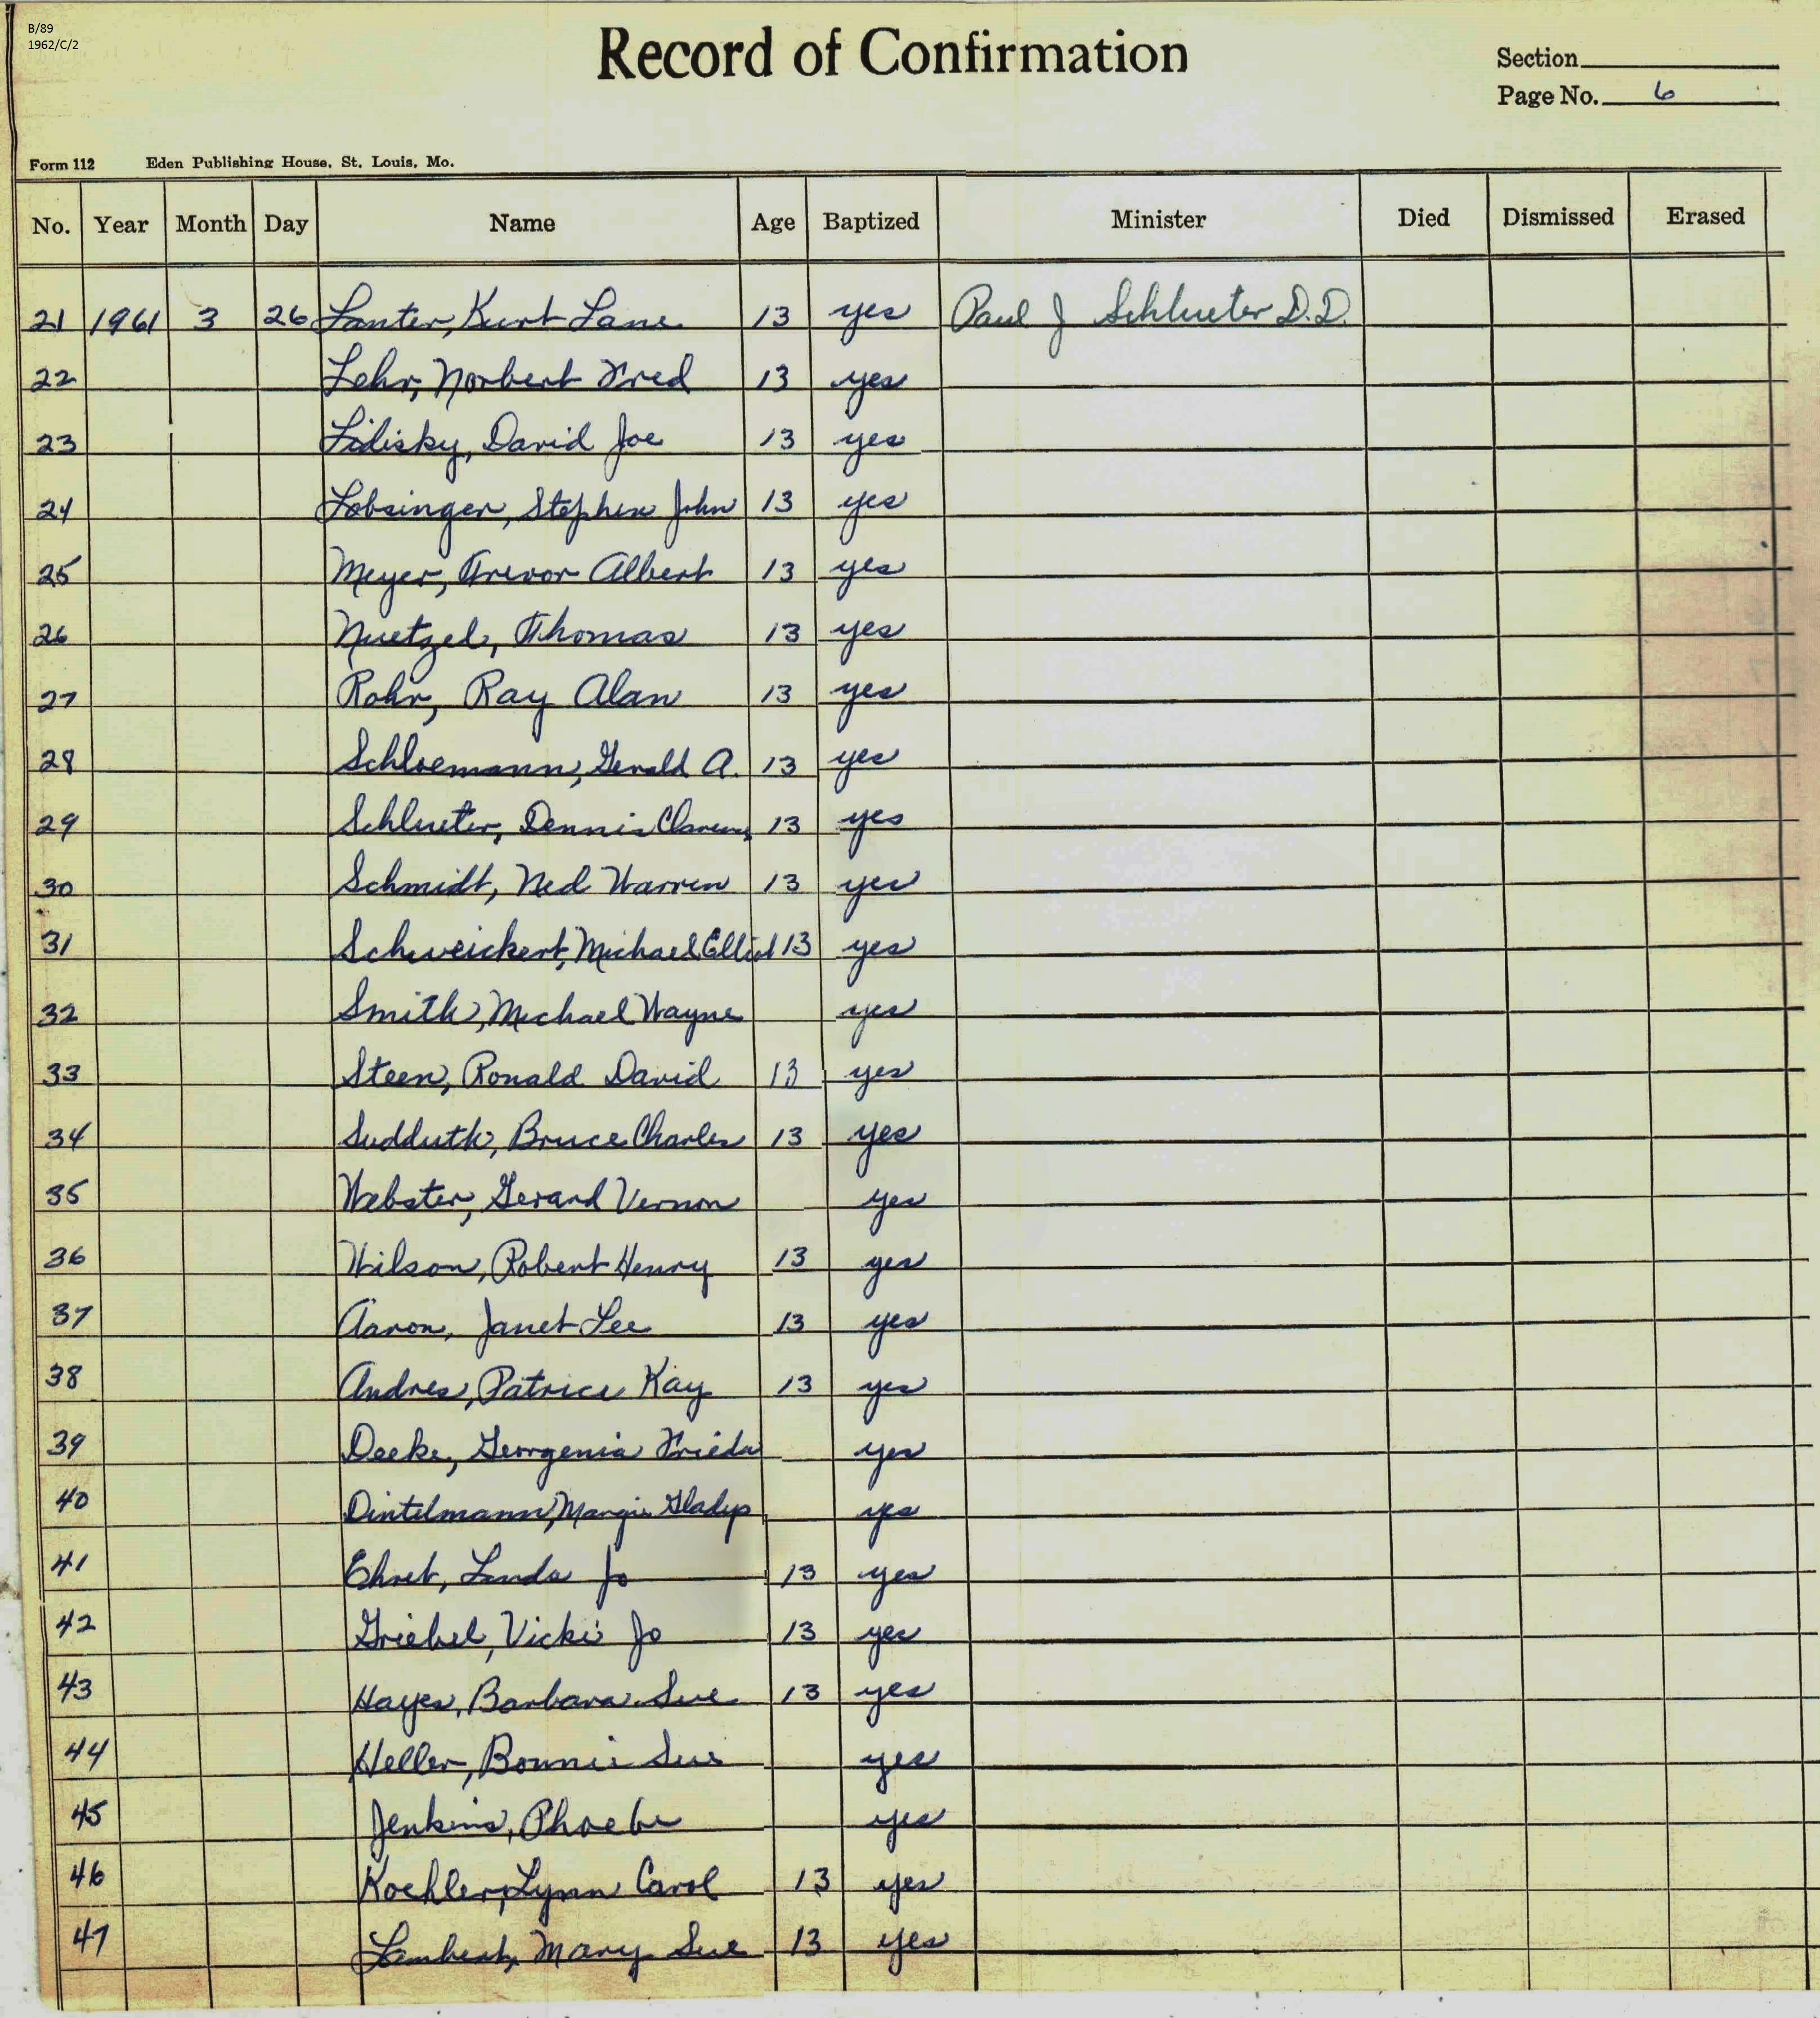 B/89
1962/C/2
Record of Confirmation
Section
Page No. 6
Form 112 Eden Publishing House, St. Louis, Mo.
No. Year Month Day Name Age Baptized Minister Died Dismissed Erased
21 1961 3 26 Lanter, Kurt Lane 13 yes Paul J Schlueter D.D.
22 Lehr, Norbert Fred 13 yes
23 Lidisky, David Joe 13 yes
24 Lobsinger, Stephen John 13 yes
25 Meyer, Trevor Albert 13 yes
26 Nuetzel, Thomas 13 yes
27 Rohr, Ray Alan 13 yes
28 Schloemann, Gerald A. 13 yes
29 Schlueter, Dennis Clarence 13 yes
30 Schmidt, Ned Warren 13 yes
31 Schweickert, Michael Elliot 13 yes
32 Smith, Michael Wayne yes
33 Steen, Ronald David 13 yes
34 Sudduth, Bruce Charles 13 yes
35 Webster, Gerard Vernon yes
36 Wilson, Robert Henry 13 yes
37 Aaron, Janet Lee 13 yes
38 Andres, Patrice Kay 13 yes
39 Deeke, Georgenia Frieda yes
40 Dintelmann, Margie Gladys yes
41 Ehret, Linda Jo 13 yes
42 Griebel, Vicki Jo 13 yes
43 Hayes, Barbara Sue 13 yes
44 Heller, Bonnie Sue yes
45 Jenkins, Phoebe yes
46 Koehler, Lynn Carol 13 yes
47 Lambert, Mary Sue 13 yes